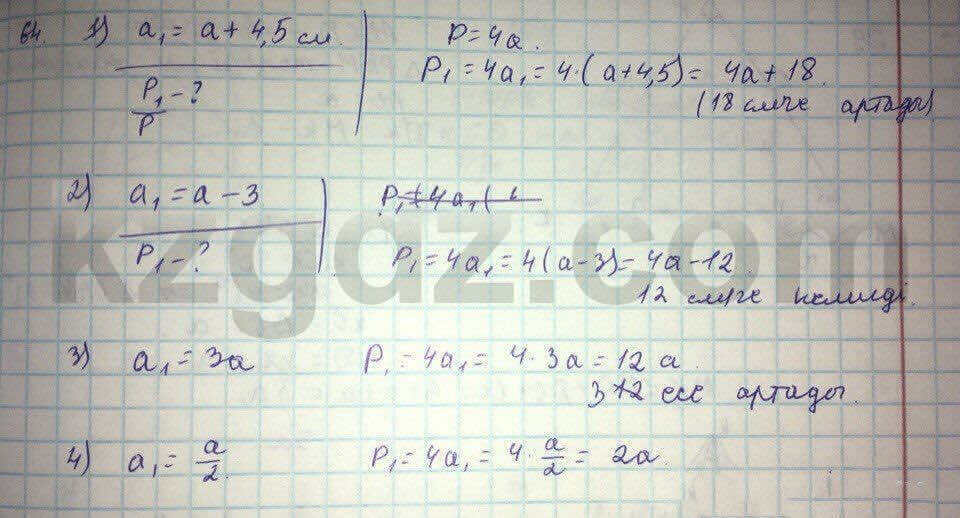 64. 1) a₁ = a + 4,5 см. P = 4a.
P₁ = 4a₁ = 4·(a+4,5) = 4a + 18.
P₁/P - ?
(18 см-ге артады)
2) a₁ = a - 3
P₁ = 4a₁(
P₁ - ? P₁ = 4a₁ = 4(a-3) = 4a - 12.
12 см-ге кемиді.
3) a₁ = 3a P₁ = 4a₁ = 4·3a = 12a.
3 есе артады.
4) a₁ = a/2. P₁ = 4a₁ = 4·a/2 = 2a.
kzgdz.com